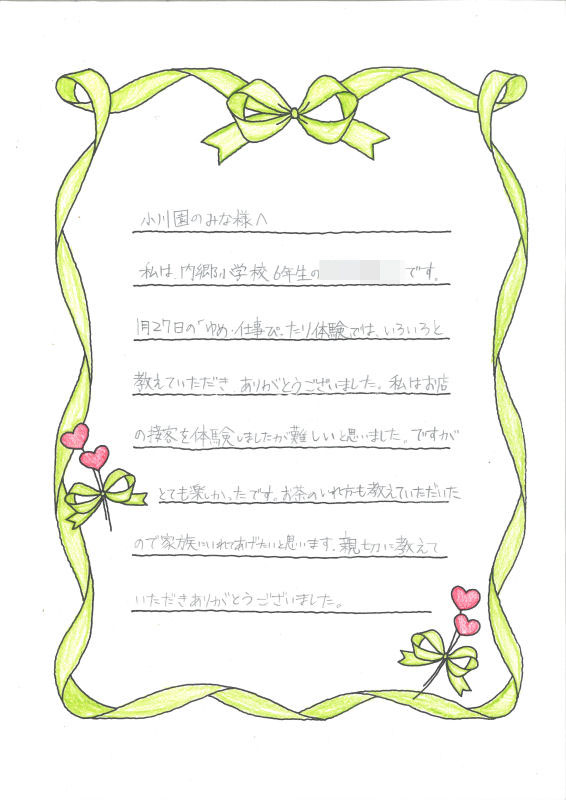 小川園のみな様へ
私は、内郷小学校6年生の です。
1月27日の「ゆめ・仕事ぴったり体験では、いろいろと
教えていただき、ありがとうございました。私はお店
の接客を体験しましたが難しいと思いました。ですが
とても楽しかったです。お茶のいれ方も教えていただいた
ので家族にいれてあげたいと思います。親切に教えて
いただきありがとうございました。